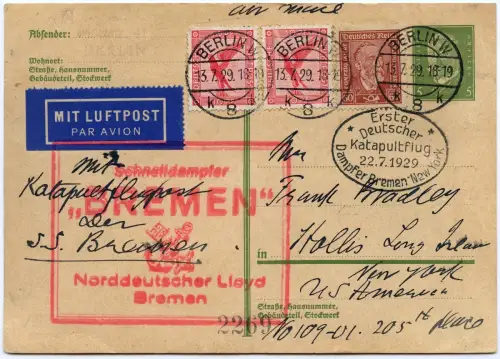 air mail
Absender:
Wohnort:
Straße, Hausnummer,
Gebäudeteil, Stockwerk
BERLIN W
13.7.29.18-19
k 8 k
BERLIN W
13.7.29.18-19
k 8 k
Deutsches Reich
50
BERLIN W
13.7.29.18-19
k 8 k
5
5
MIT LUFTPOST
PAR AVION
Erster
Deutscher
Katapultflug
22.7.1929
Dampfer Bremen-New York
Schnelldampfer
„BREMEN"
Norddeutscher Lloyd
Bremen
Mit
Katapultflugpost
der
S.S. Bremen
Mr
Frank Bradley
in
Hollis Long Island
New York
US America
Straße, Hausnummer,
Gebäudeteil, Stockwerk
No 109-01. 205th place
2269